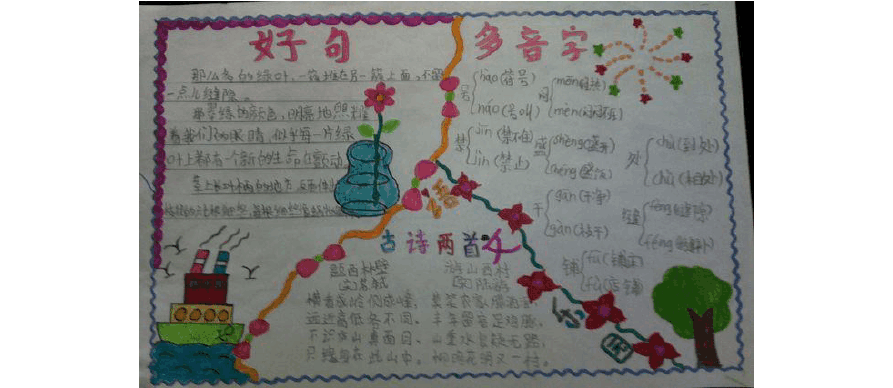 好句
那么多的绿叶,一簇堆在另一簇上面,不留
一点儿缝隙。
翠绿的颜色,明亮地照耀
着我们的眼睛,似乎每一片绿
叶上都有一个新的生命在颤动
多音字
号
hào(符号)
háo(号叫)
闷
mēn(闷热)
mèn
禁
jīn(禁不住)
jìn(禁止)
盛
shèng
chéng
处
chù(到处)
chǔ
干
gān(干净)
gàn
缝
fèng(缝隙)
féng(缝补)
铺
pū
pù(店铺)
语
古诗两首
题西林壁
宋 苏轼
横看成岭侧成峰,
远近高低各不同。
不识庐山真面目,
只缘身在此山中。
游山西村
宋 陆游
莫笑农家腊酒浑,
丰年留客足鸡豚。
山重水复疑无路,
柳暗花明又一村。